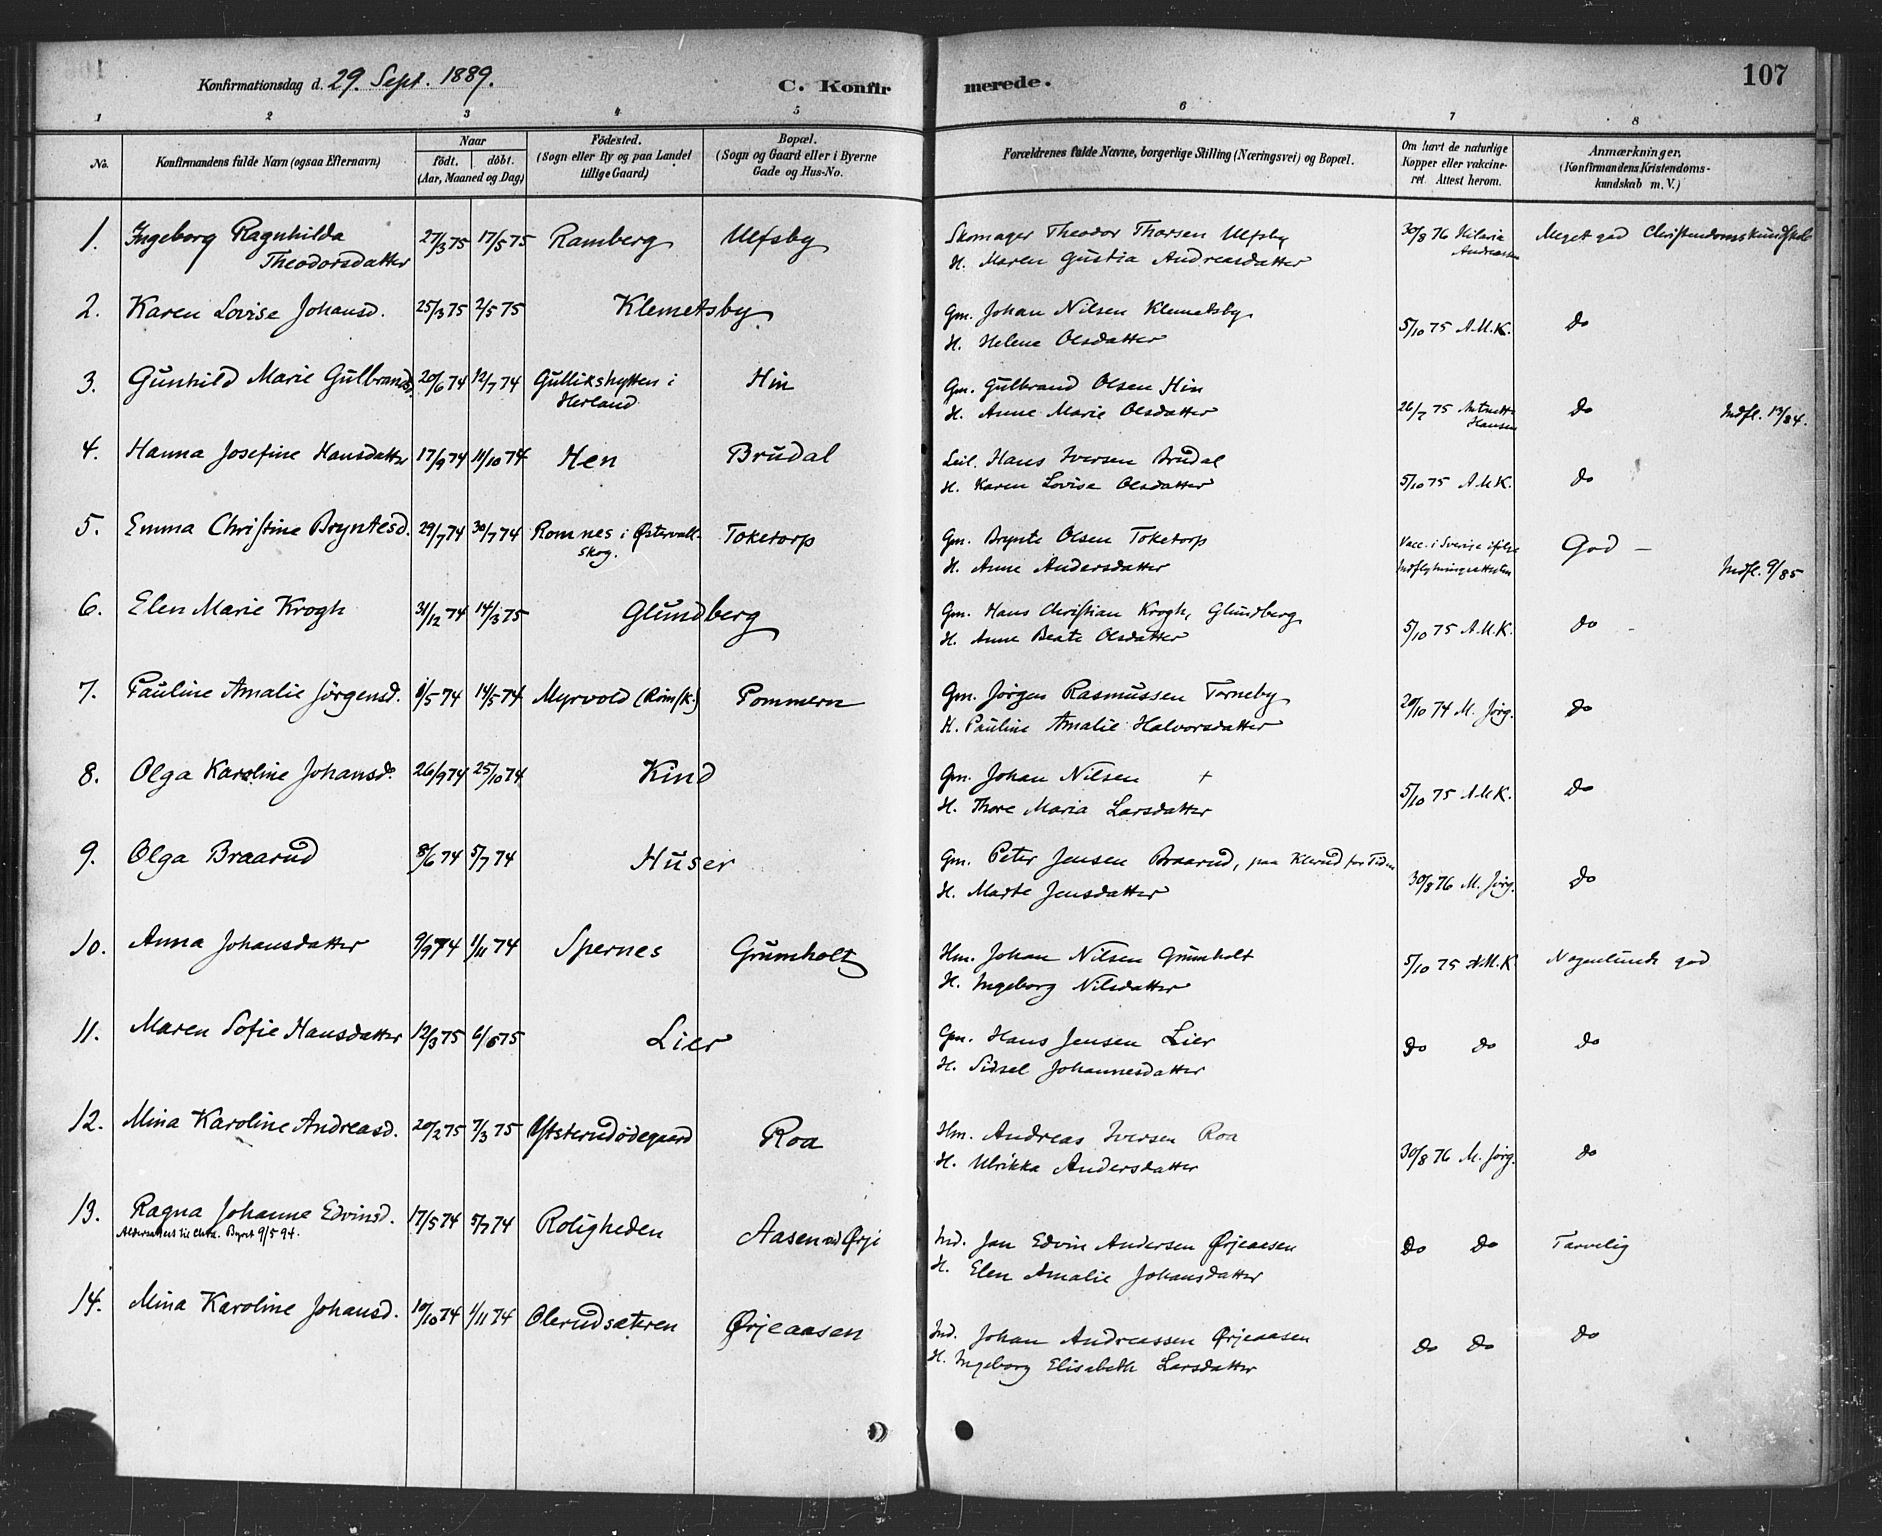 Konfirmationsdag d. 29. Sept. 1889.
C. Konfirmerede.
107
1 2 3 4 5 6 7 8
No.
Konfirmandens fulde Navn (ogsaa Efternavn)
Naar
födt. döbt.
(Aar, Maaned og Dag)
Födested.
(Sogn eller By og paa Landet
tillige Gaard)
Bopæl.
(Sogn og Gaard eller i Byerne
Gade og Hus-No.
Forældrenes fulde Navne, borgerlige Stilling (Næringsvei) og Bopæl.
Om havt de naturlige
Kopper eller vakcine-
ret. Attest herom.
Anmærkninger,
(Konfirmandens Kristendoms-
kundskab m. V.)
1. Ingeborg Ragnhilda 27/3 75 17/5 75 Ramberg Ulfsby Skomager Theodor Thorsen Ulfsby 30/8 76 Hilaria Meget god Christendomskundskab
Theodorsdatter H. Maren Gustia Andreasdatter Andreassen
2. Karen Lovise Johansd. 25/3 75 2/5 75 Klemetsby Gm. Johan Nilsen Klemetsby 5/10 75 A.M.K. do
H. Helene Olsdatter
3. Gunhild Marie Gulbrandsd. 20/6 74 12/7 74 Gullikshytten i Hin Gm. Gulbrand Olsen Hin
Herland H. Anne Marie Olsdatter 26/7 75 Hansen do Indfl. 13/84.
4. Hanna Josefine Hansdatter 17/9 74 11/10 74 Hen Brudal Leil. Hans Iversen Brudal
H. Karen Lovise Olsdatter 5/10 75 A.M.K. do
5. Emma Christine Bryntesd. 29/7 74 30/7 74 Romnes i Østervall- Toketorp Gm. Brynte Olsen Toketorp Vacc. i Sverige ifølge God –
skog. H. Anne Andersdatter Indflytningsattesten Indfl. 9/85
6. Elen Marie Krogh 31/12 74 14/3 75 Glundberg Gm. Hans Christian Krogh, Glundberg
H. Anne Beate Olsdatter 5/10 75 A.M.K. do –
7. Pauline Amalie Jørgensd. 1/5 74 14/5 74 Myrvold (Rømsk.) Pommern Gm. Jørgen Rasmussen Torneby 20/10 74 M. Jørg. do
H. Pauline Amalie Halvorsdatter
8. Olga Karoline Johansd. 26/9 74 25/10 74 Kind Gm. Johan Nilsen +
H. Thore Maria Larsdatter 5/10 75 A.M.K. do
9. Olga Braarud 8/6 74 5/7 74 Huser Gm. Peter Jensen Braarud, paa Klerud for Tiden
H. Marte Jensdatter 30/8 76 M. Jørg. do
10. Anna Johansdatter 9/9 74 1/11 74 Spernes Grumholt Hm. Johan Nilsen Grumholt 5/10 75 A.M.K. Nogenlunde god
H. Ingeborg Nilsdatter
11. Maren Sofie Hansdatter 12/3 75 6/6 75 Lier Gm. Hans Jensen Lier do do do
H. Sidsel Johannesdatter
12. Mina Karoline Andreasd. 20/2 75 7/3 75 Ysterudødegaard Roa Hm. Andreas Iversen Roa
H. Ulrikka Andersdatter 30/8 76 M. Jørg. do
13. Ragna Johanne Edvinsd. 17/5 74 5/7 74 Roligheden Aasen ved Ørje Ind. Jan Edvin Andersen Ørjeaasen do do Tarvelig
Aldersattest til Chra. Byret 9/5 94. H. Elen Amalie Johansdatter
14. Mina Karoline Johansd. 10/10 74 1/11 74 Olerudsæteren Ørjeaasen Ind. Johan Andreassen Ørjeaasen do do do
H. Ingeborg Elisabeth Larsdatter